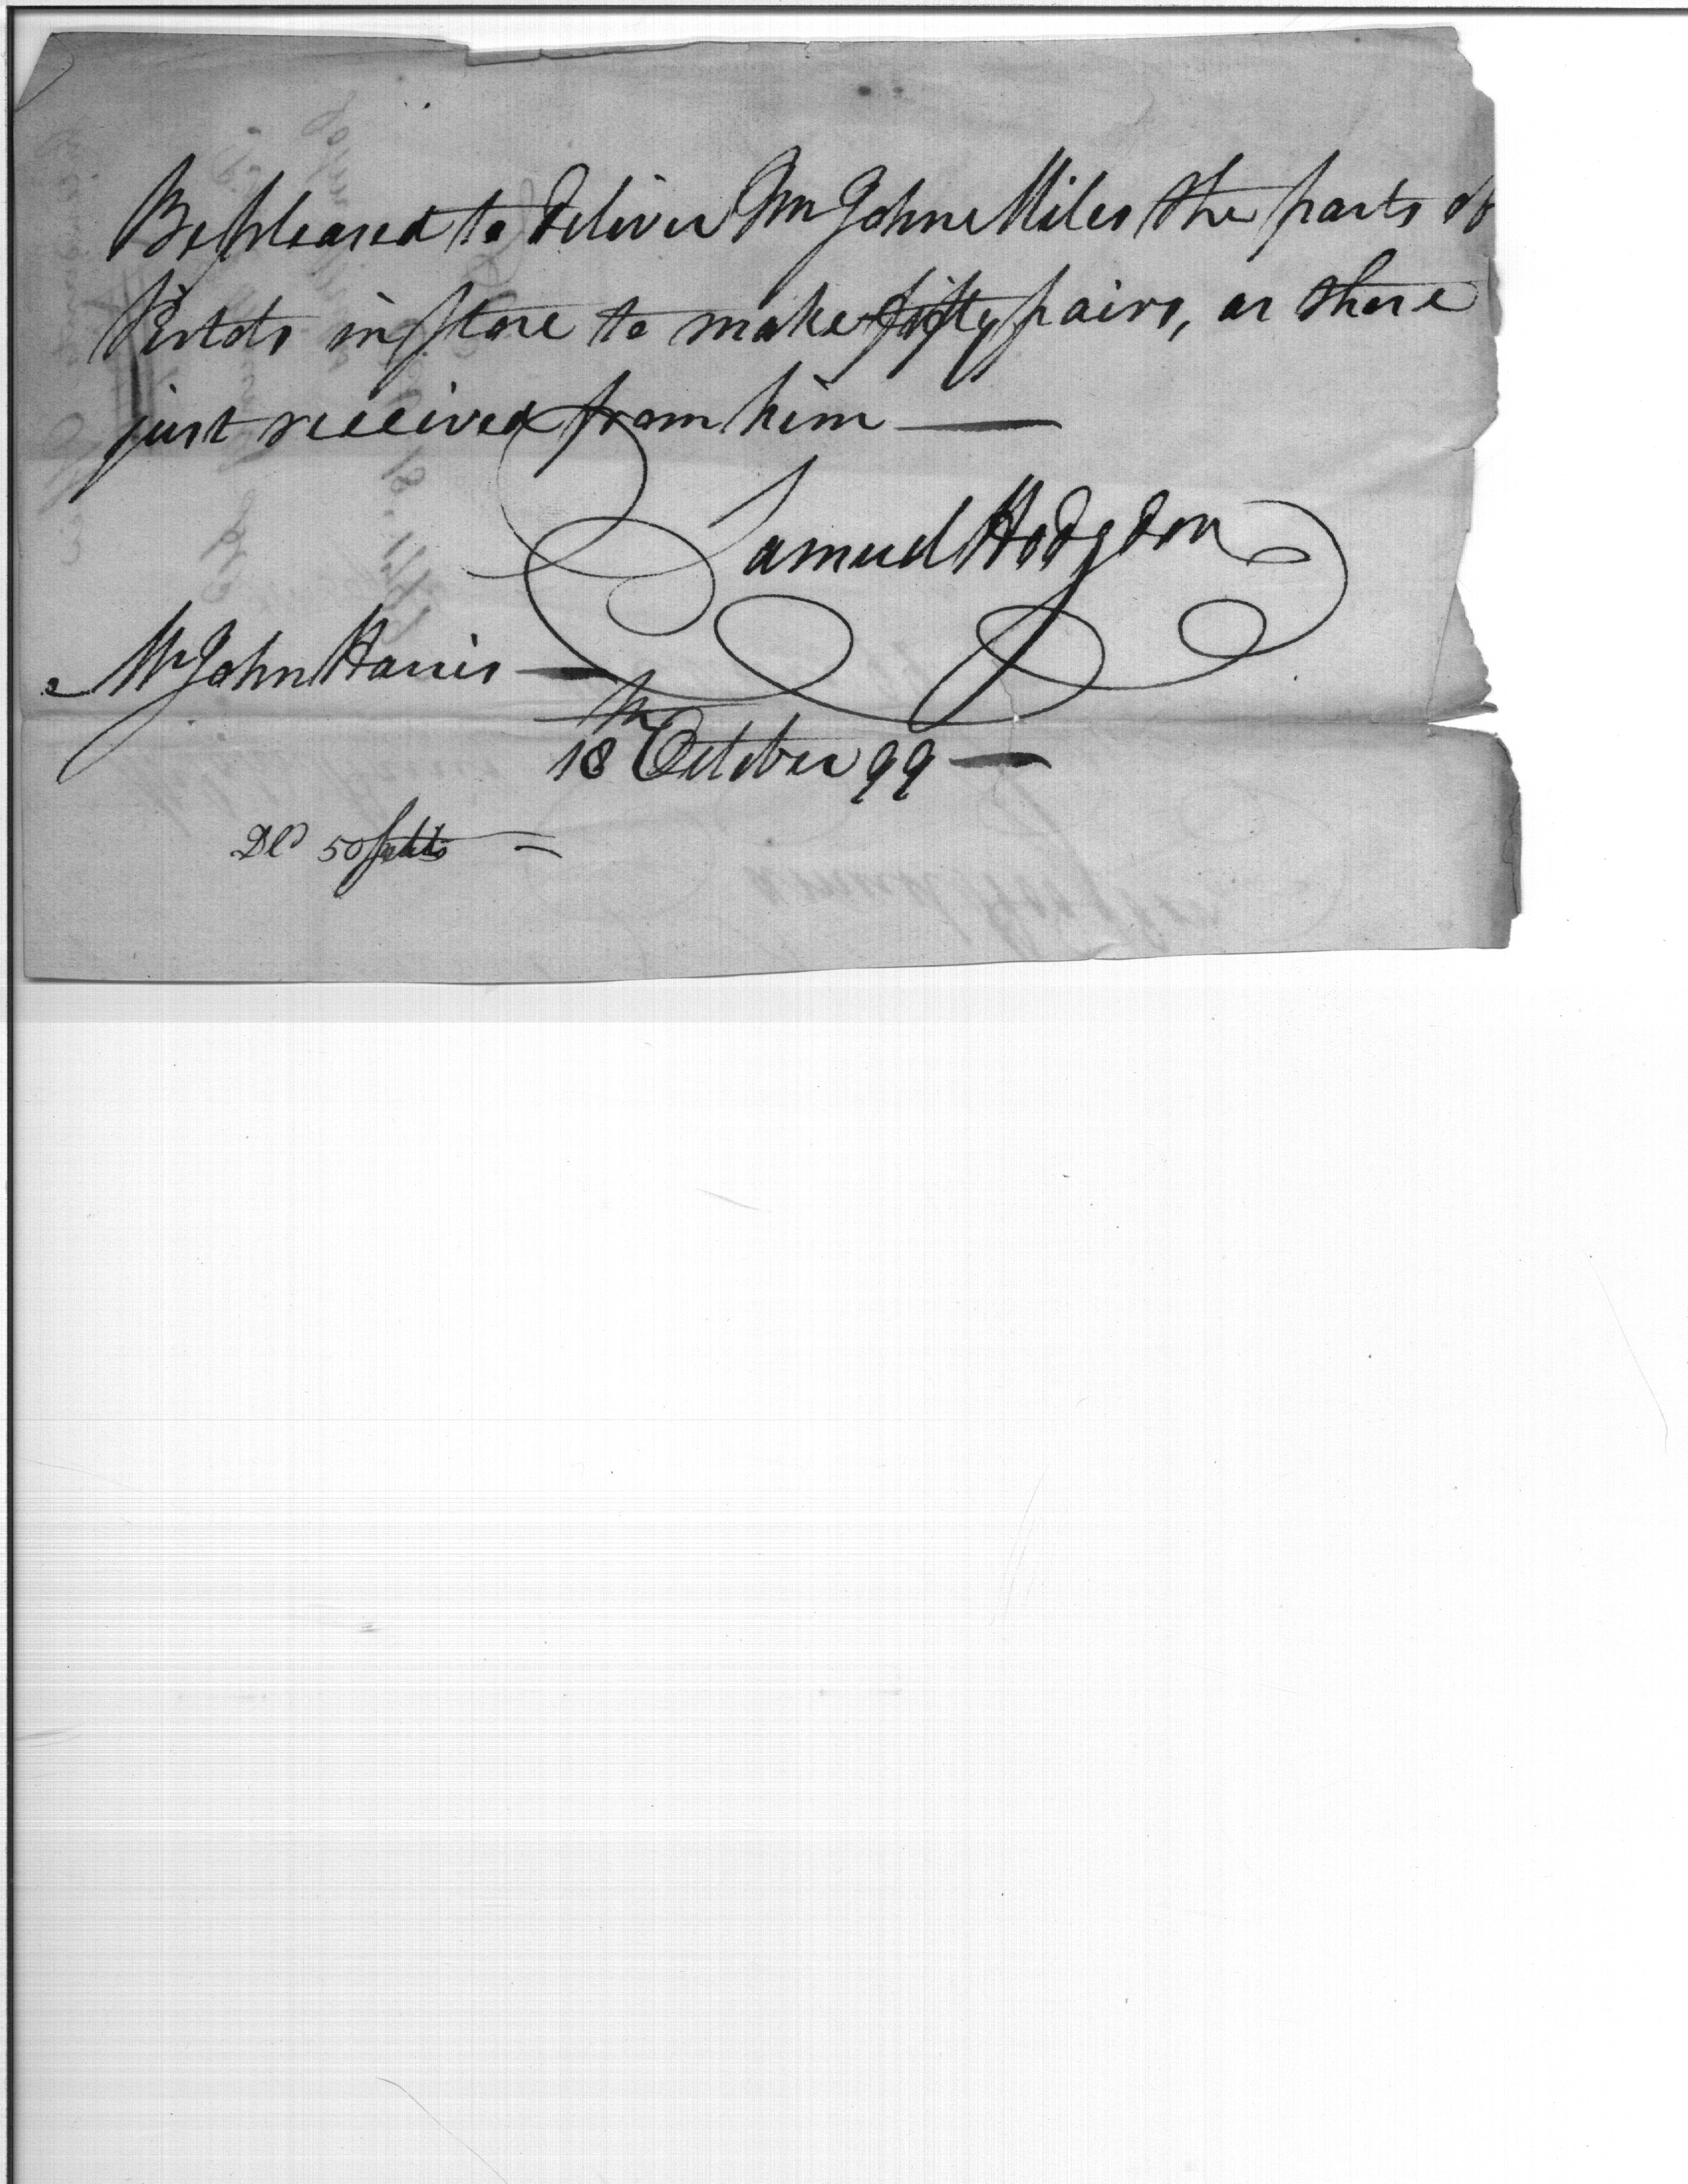 Be pleased to deliver Mr John Miles the parts of
Pistols in Store to make fifty pairs, as those
just received from him —
Samuel Hodgdon
Mr John Harris —
18th October 99 —
Dld 50 setts —